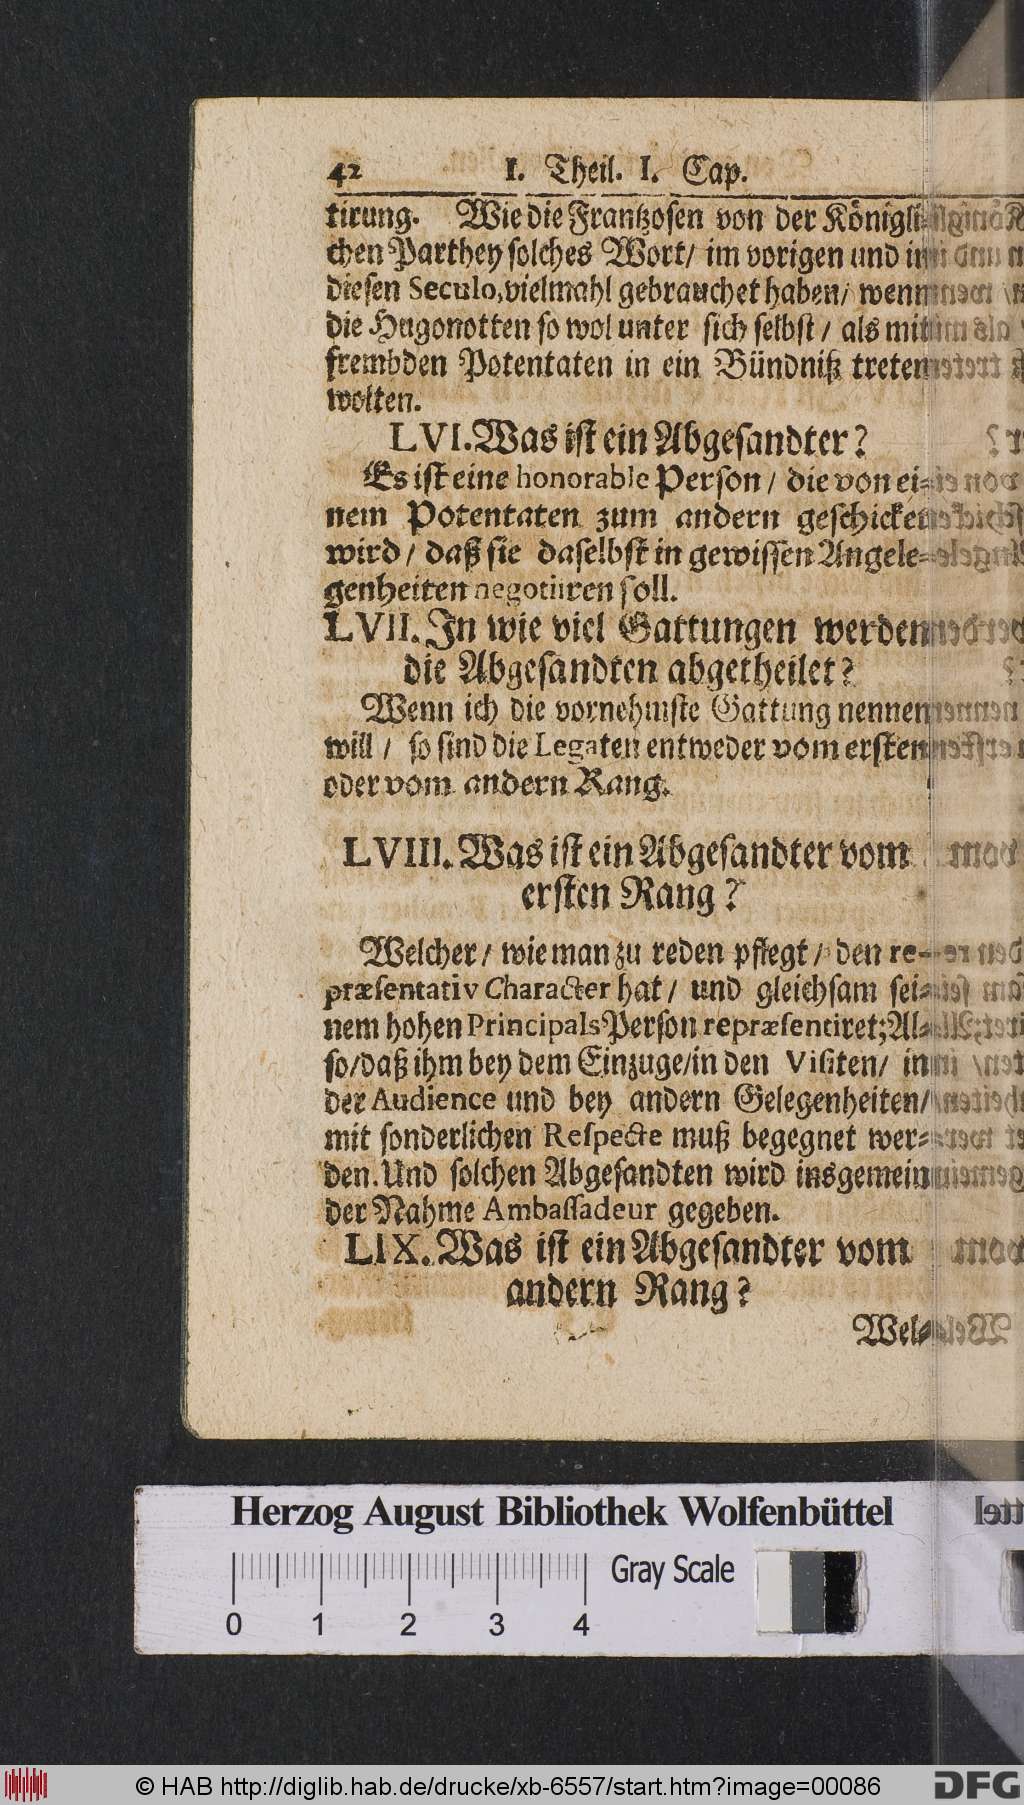 42 I. Theil. I. Cap.
tirung. Wie die Frantzosen von der Königli-
chen Parthey solches Wort/ im vorigen und in
diesen Seculo, vielmahl gebrauchet haben/ wenn
die Hugonotten so wol unter sich selbst/ als mit
frembden Potentaten in ein Bündniß treten
wolten.
LVI. Was ist ein Abgesandter?
Es ist eine honorable Person/ die von ei-
nem Potentaten zum andern geschicket
wird/ daß sie daselbst in gewissen Angele-
genheiten negotiiren soll.
LVII. In wie viel Gattungen werden
die Abgesandten abgetheilet?
Wenn ich die vornehmste Gattung nennen
will/ so sind die Legaten entweder vom ersten
oder vom andern Rang.
LVIII. Was ist ein Abgesandter vom
ersten Rang?
Welcher/ wie man zu reden pflegt/ den re-
præsentativ Character hat/ und gleichsam sei-
nem hohen Principals Person repræsentiret; Al-
so/ daß ihm bey dem Einzuge/ in den Visiten/ in
der Audience und bey andern Gelegenheiten/
mit sonderlichen Respecte muß begegnet wer-
den. Und solchen Abgesandten wird insgemein
der Nahme Ambassadeur gegeben.
LIX. Was ist ein Abgesandter vom
andern Rang?
Wel-
Herzog August Bibliothek Wolfenbüttel
Gray Scale
0 1 2 3 4
© HAB http://diglib.hab.de/drucke/xb-6557/start.htm?image=00086
DFG